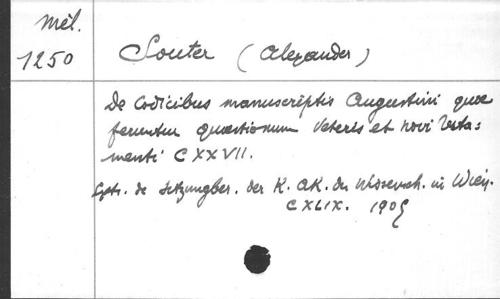 Mél.
1250
Souter (Alexander)
De Codicibus manuscriptis Augustini quae
feruntur quaestionum Veteris et novi Testa=
menti CXXVII.
Extr. de Sitzungber. der K. Ak. der Wissensch. in Wien.
CXLIX. 1905